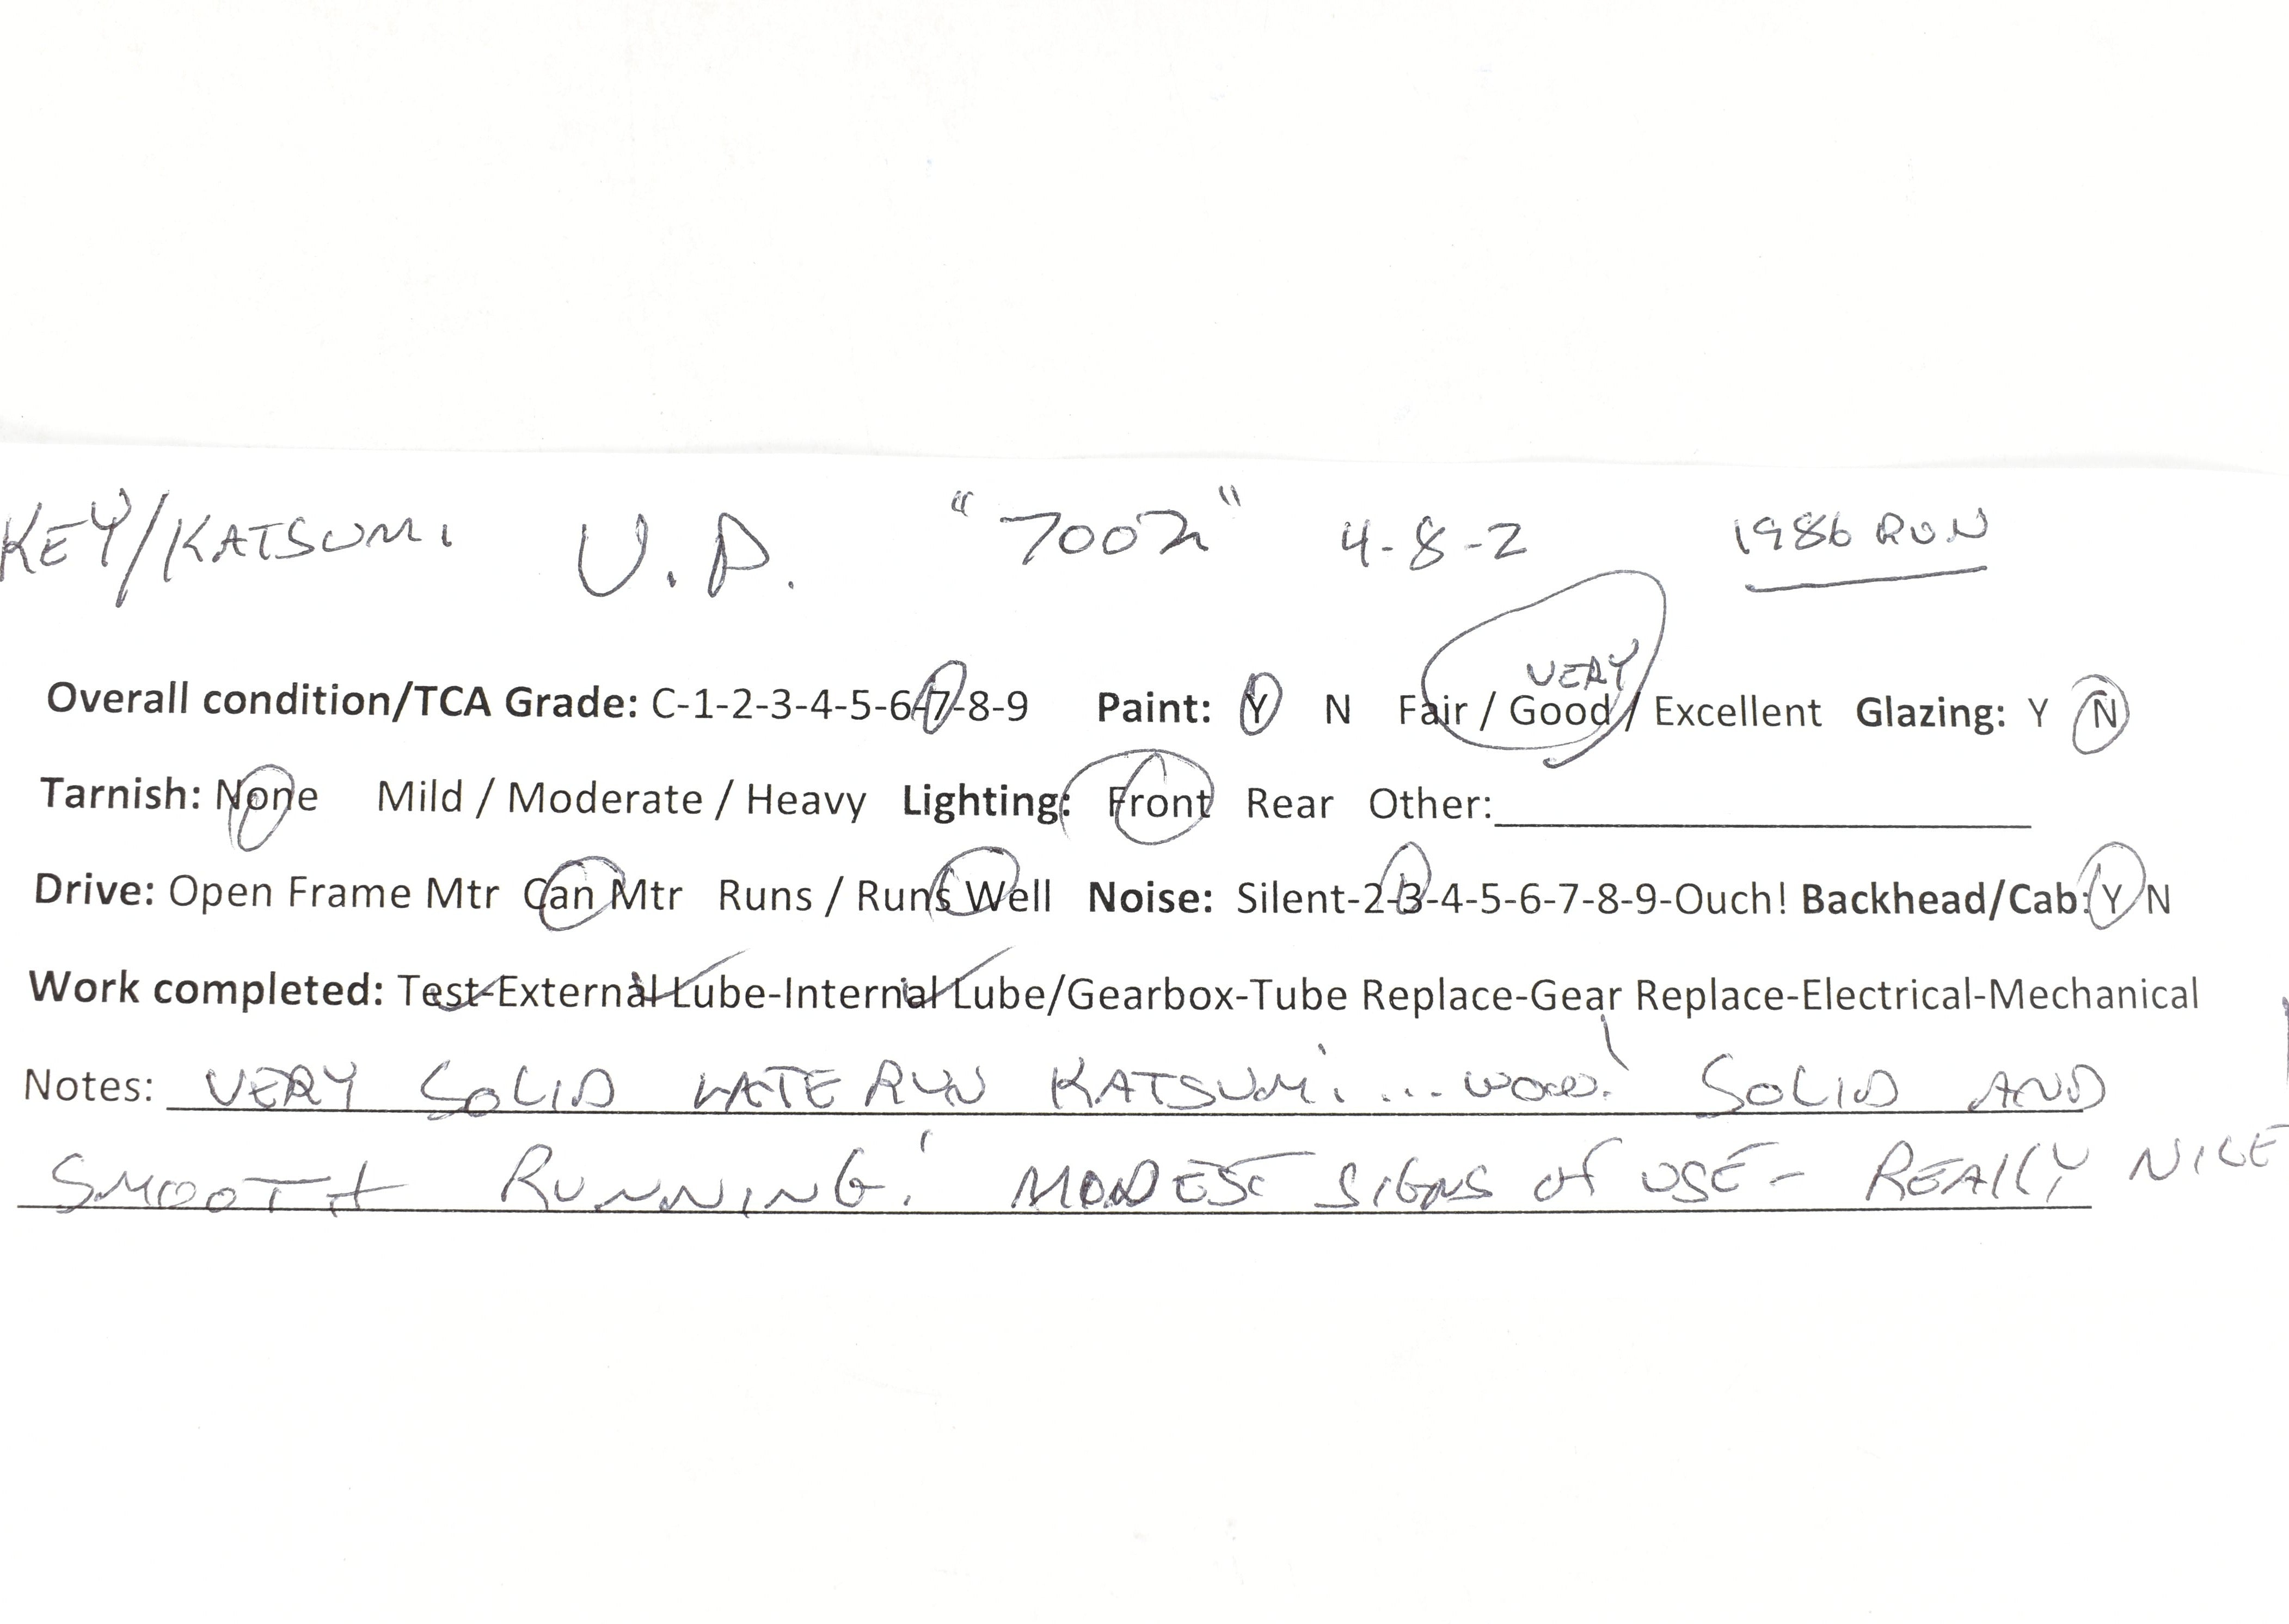 KEY/KATSUMI U.P. "7002" 4-8-2 1986 RUN
VERY
Overall condition/TCA Grade: C-1-2-3-4-5-6-7-8-9 Paint: Y N Fair / Good / Excellent Glazing: Y N
Tarnish: None Mild / Moderate / Heavy Lighting: Front Rear Other:
Drive: Open Frame Mtr Can Mtr Runs / Runs Well Noise: Silent-2-3-4-5-6-7-8-9-Ouch! Backhead/Cab: Y N
Work completed: Test-External Lube-Internal Lube/Gearbox-Tube Replace-Gear Replace-Electrical-Mechanical
Notes: VERY SOLID LATE RUN KATSUMI... WOW! SOLID AND
SMOOTH RUNNING! MODEST SIGNS OF USE - REALLY NICE